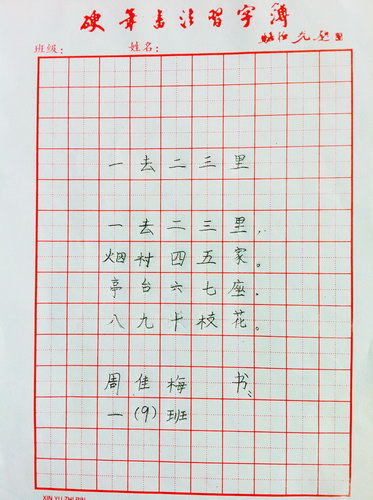 硬笔书法习字簿
班级： 姓名：
一去二三里
一去二三里，
烟村四五家。
亭台六七座，
八九十枝花。
周佳梅 书
一（9）班
XIN YU ZHI PIN